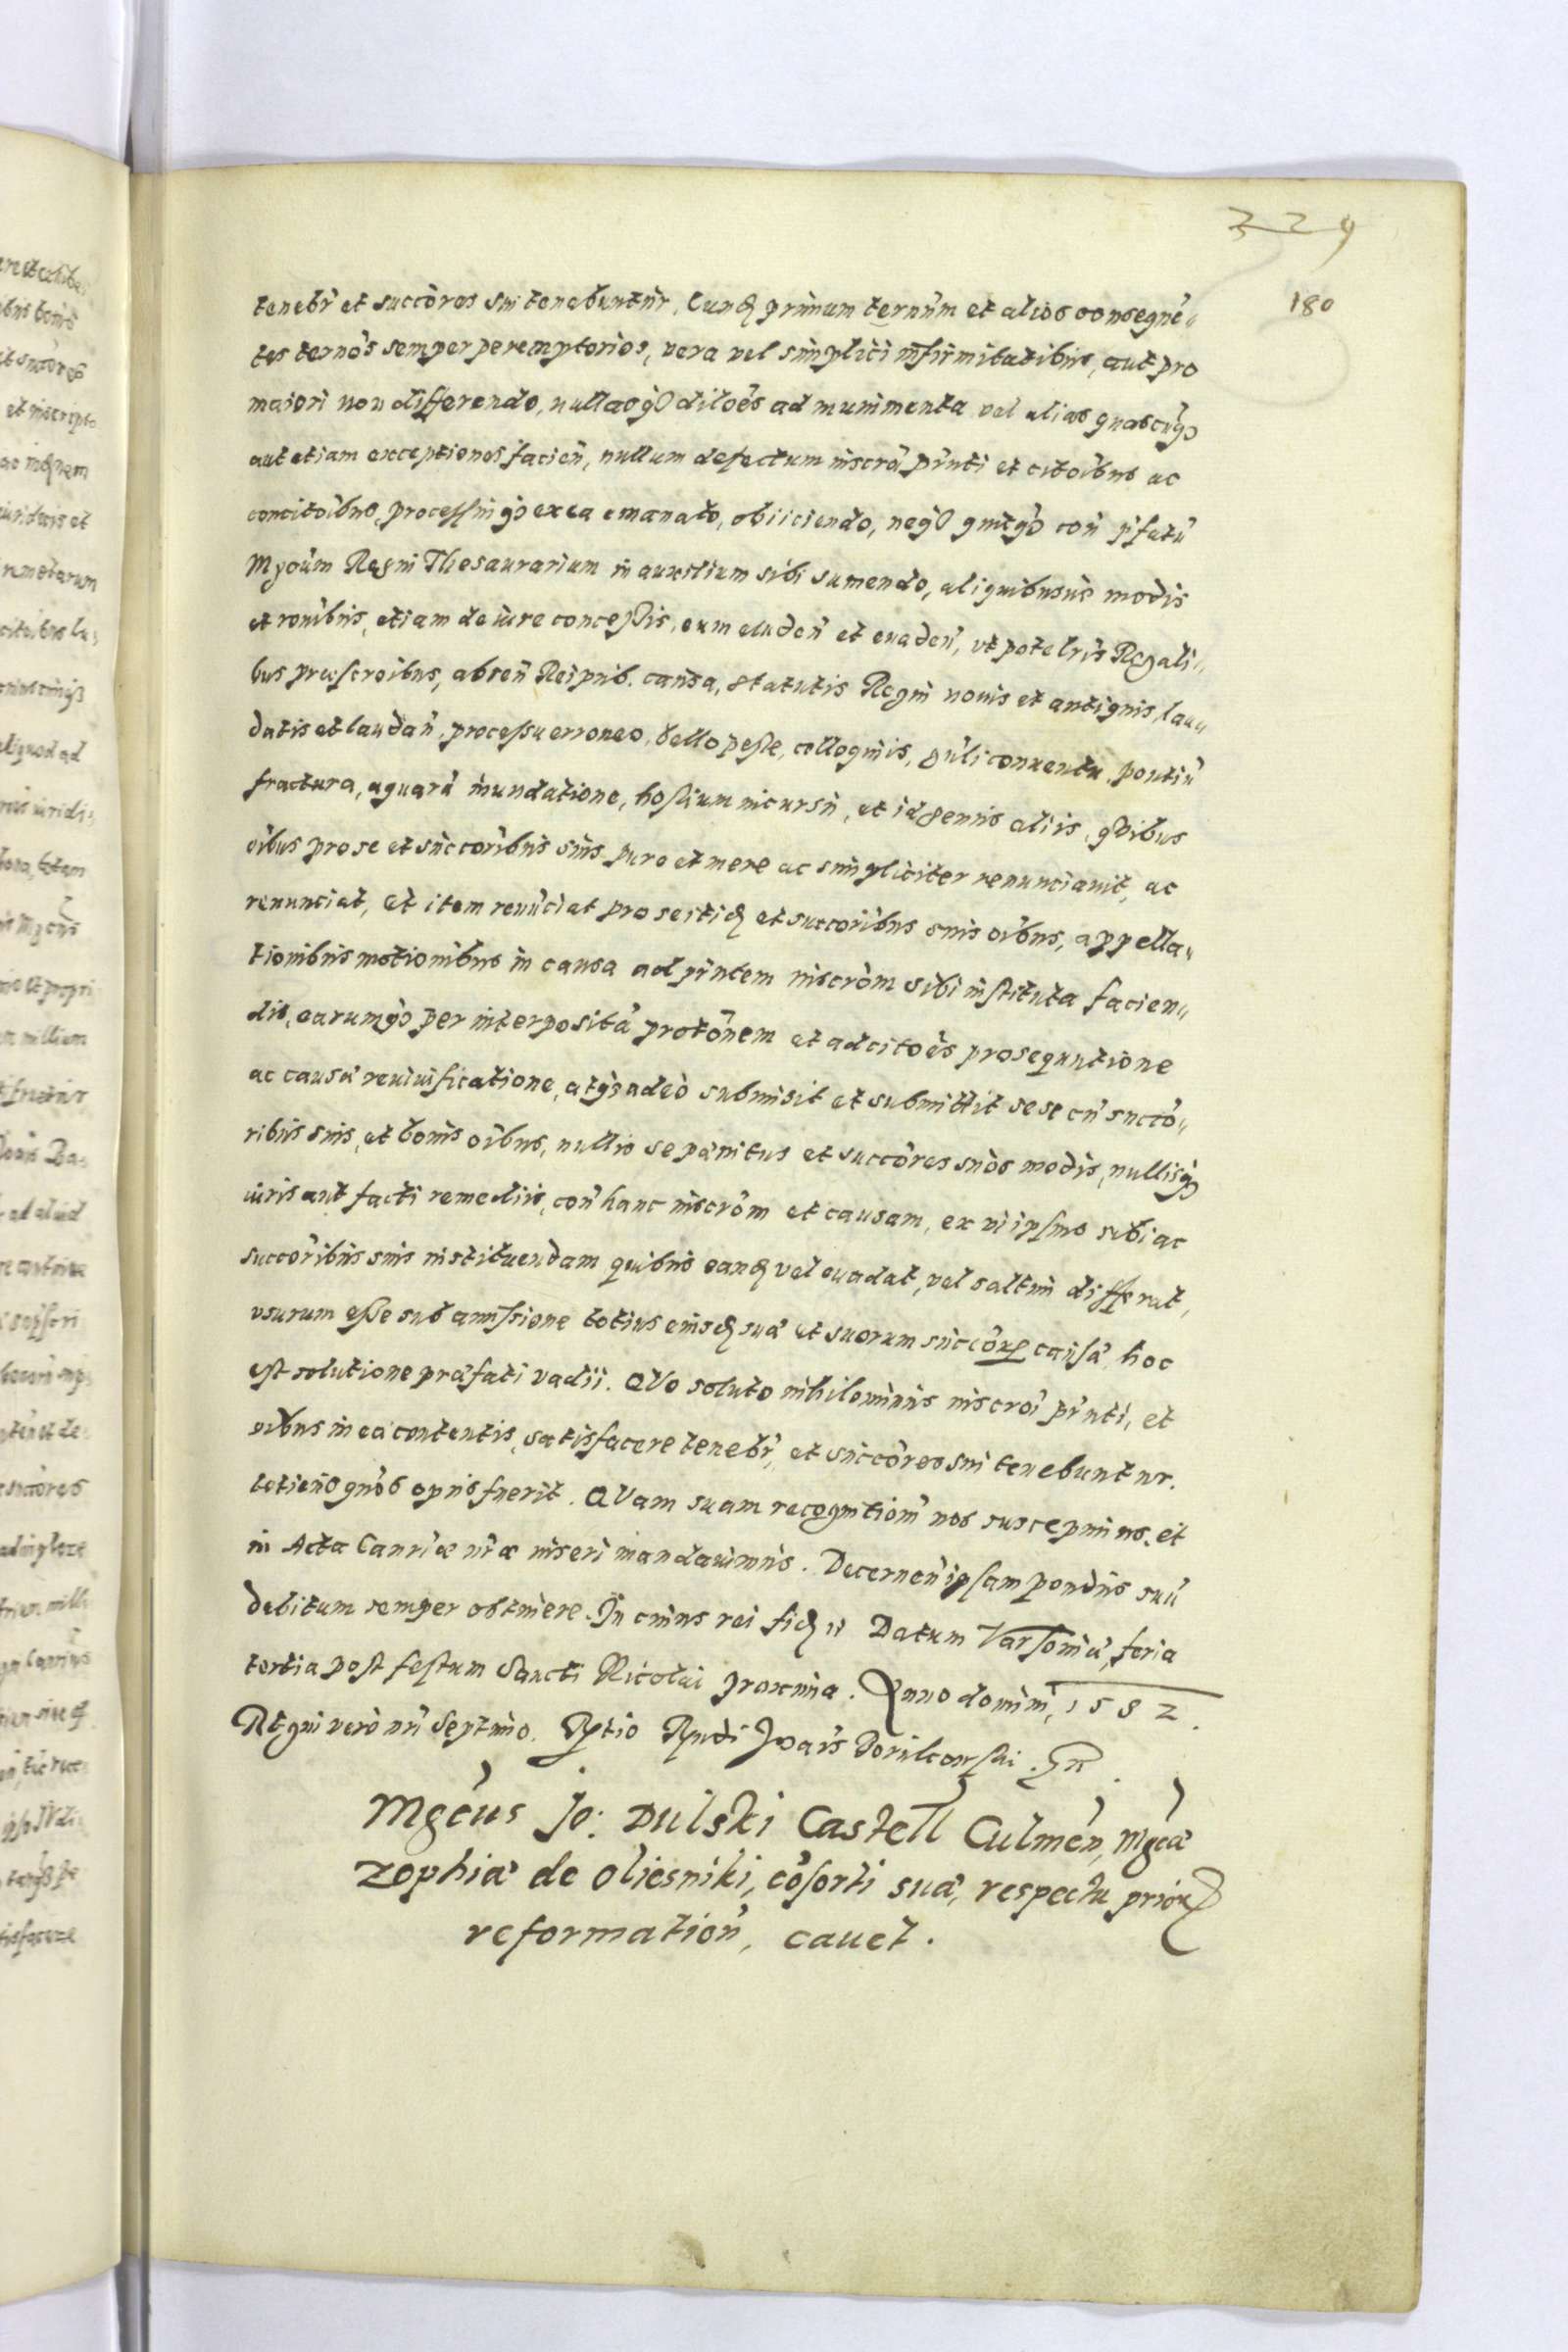 329
180
tenebr̄ et succōres sui tenebuntur, Eundē primum ternūm et alios consequē„
tes ternōs semper peremptorios, vera vel simplici infirmitatibus, aut pro
maiori non differendo, nullasq₃ dilōes ad munimenta vel alias quascūq₃
aut etiam exceptiones facień, nullum defectum inscrō̄i pn̄ti et citōibus ac
concitōibus, processuiq₃ ex ea emanato, obiiciendo, neq₃ quēq₃ coń p̄fatū
Mgcūm Regni Thesaurarium in auxilium sibi sumendo, aliquibusue modis
et ronībus, etiam de iure concessis, eum eludeń et euadeń, vtpote lrīs Regali„
bus praescrōibus, abseń Reipub. causa, statutis Regni nouis et antiquis, lau„
datis et laudań, processu erroneo, bello peste, colloquiis, gn̄li conuentu, pontiū
fractura, aquarū inundatione, hostium incursu, et id genus aliis, qu̇ibus
oībus pro se et succōribus suis pure et mere ac simpliciter renunciauit, ac
renunciat, Et item renūciat pro se itidē et succōribus suis oībus, appella„
tionibus motionibus in causa ad pn̄tem inscrōm sibi instituta facien„
dis, earumq₃ per interpositā protōnem et ad citōes prosequutione
ac causae reuiuificatione, atq₃ adeò submisit et submittit sese cū succō„
ribus suis, et bonis oībus, nullis se penitus et succōres suōs modis, nullisq₃
iuris aut facti remediis, coń hanc inscrōm et causam, ex vi ipsius sibi ac
succōribus suis instituendam quibus eandē vel euadat, vel saltim differat,
vsurum esse sub amissione totius eiusdē suae et suorum succōrum causae, hoc
est solutione praefati vadii. QVo soluto nihilominus inscrōi pn̄ti, et
oībus in ea contentis, satisfacere tenebr̄, et succōres sui tenebuntur.
totiens quōs opus fuerit. QVam suam recognitiōm nos suscepimus, et
in Acta Canriae nr̄ae inseri mandauimus. Decerneń ipsam pondus suū
debitum semper obtinere. In cuius rei fidē „ Datum Varsouiae, feria
tertia post festum Sancti Nicolai proxima. Anno domini, 1582.
Regni verò nr̄i Septimo. Rltio Rn̄di Joaīs Borukowski.
Mgcus Jo: Dulski Castell Culmeń, Mgcae
Zophiae de Oliesniki, cōsorti suae, respectu priorum
reformatioń, cauet.